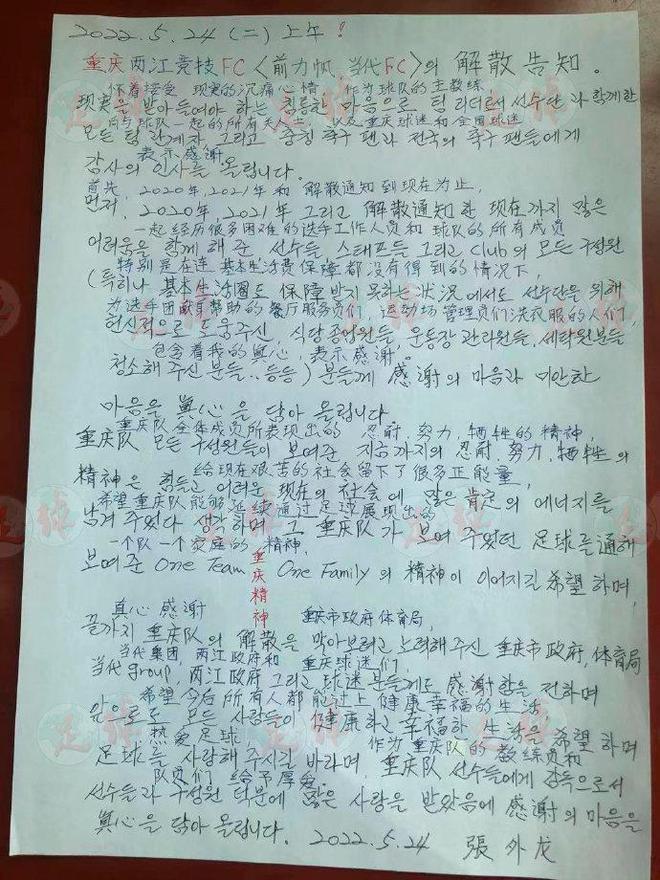 2022.5.24 (二) 上午!
重庆两江竞技FC〈前力帆, 当代FC〉의 解散告知。
怀着接受 现实的沉痛心情 作为球队的主教练
현実을 받아들여야 하는 침통한 마음으로 팀 리더로서 선수단과 함께한
向与球队一起的所有关人士 以及重庆球迷和全国球迷
모든 팀 관계자 그리고 충칭 축구팬과 전국의 축구팬들에게
表示感谢
감사의 인사를 올립니다.
首先, 2020年, 2021年和 解散通知到现在为止,
먼저, 2020年, 2021年 그리고 解散通知한 现在까지 많은
一起经历很多困难的选手工作人员和球队的所有成员
어려움을 함께 해준 선수들 스태프들 그리고 Club의 모든 구성원
特别是在连 基本生活费保障都没有得到的情况下,
(특히나 基本生活圈도 保障받지 못하는 状况에서도 선수단을 위해
为选手团献身帮助的餐厅服务员们, 运动场管理员们洗衣服的人们,
헌신적으로 도움주신, 식당종업원들, 운동장 관리원들, 세탁원분들
包含着我的真心, 表示感谢。
청소해 주신 분들.. 등등) 분들께 感谢의 마음과 미안한
마음을 真心을 담아 올립니다.
重庆队全体成员所表现出的 忍耐, 努力, 牺牲的精神,
重庆队 모든 구성원들이 보여준 지금까지의 忍耐, 努力, 牺牲의
给现在艰苦的社会留下了很多正能量,
精神은 힘들고 어려운 现在의 社会에 많은 肯定의 에너지를
希望重庆队能够延续通过足球展现出的
남겨 주었다 생각하며 그 重庆队가 보여 주었던 足球를 通해
一个队一个家庭的 精神,
보여준 One Team One Family의 精神이 이어지길 希望하며,
重庆精神
真心感谢 重庆市政府体育局,
끝까지 重庆队의 解散을 막아보려고 노력해주신 重庆市政府, 体育局
当代集团 两江政府和 重庆球迷们,
当代group, 两江政府 그리고 球迷분들게도 感谢함을 전하며
希望今后所有人都能过上健康幸福的生活
앞으로도 모든 사람들이 健康하고 幸福한 生活을 希望하며
热爱足球, 作为重庆队的教练员和
足球를 사랑해 주시길 바라며, 重庆队 선수들에게 감독으로서
队员们 给予厚爱
선수들과 구성원 덕분에 많은 사랑을 받았음에 感谢의 마음을
真心을 담아 올립니다. 2022.5.24 張外龙